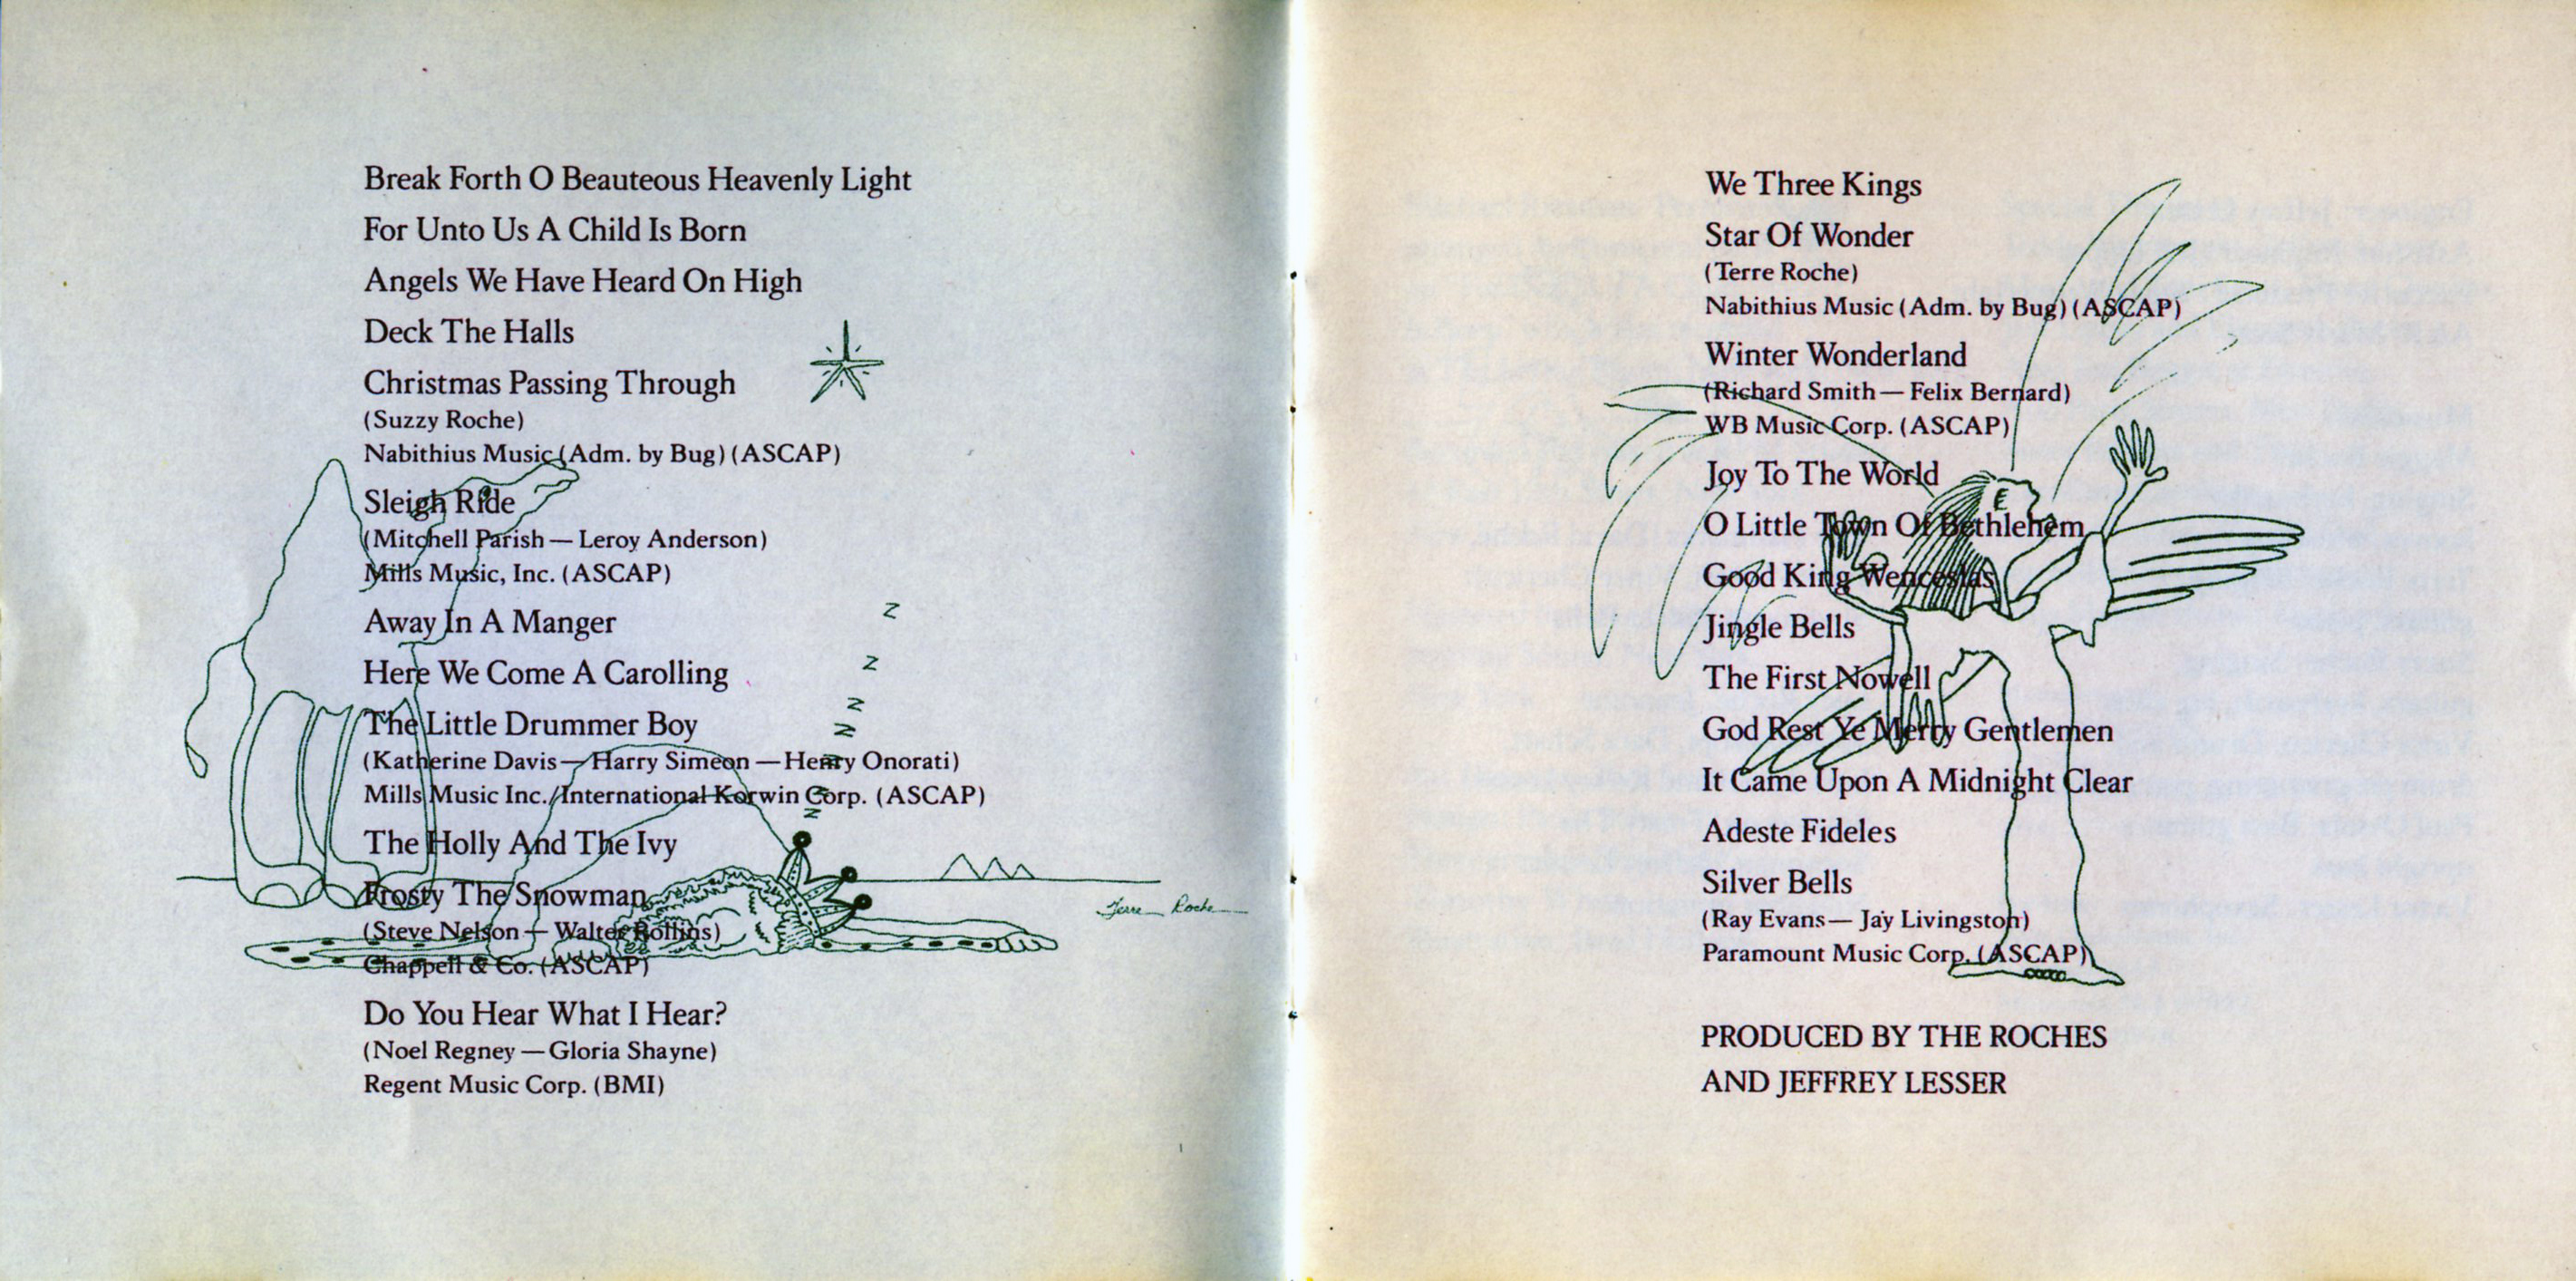 Break Forth O Beauteous Heavenly Light
For Unto Us A Child Is Born
Angels We Have Heard On High
Deck The Halls
Christmas Passing Through
(Suzzy Roche)
Nabithius Music (Adm. by Bug) (ASCAP)
Sleigh Ride
(Mitchell Parish — Leroy Anderson)
Mills Music, Inc. (ASCAP)
Away In A Manger
Here We Come A Carolling
The Little Drummer Boy
(Katherine Davis — Harry Simeon — Henry Onorati)
Mills Music Inc./International Korwin Corp. (ASCAP)
The Holly And The Ivy
Frosty The Snowman
(Steve Nelson — Walter Rollins)
Chappell & Co. (ASCAP)
Do You Hear What I Hear?
(Noel Regney — Gloria Shayne)
Regent Music Corp. (BMI)
Z
Z
Z
Z
Z
Z
Z
Terre Roche
We Three Kings
Star Of Wonder
(Terre Roche)
Nabithius Music (Adm. by Bug) (ASCAP)
Winter Wonderland
(Richard Smith — Felix Bernard)
WB Music Corp. (ASCAP)
Joy To The World
O Little Town Of Bethlehem
Good King Wenceslas
Jingle Bells
The First Nowell
God Rest Ye Merry Gentlemen
It Came Upon A Midnight Clear
Adeste Fideles
Silver Bells
(Ray Evans — Jay Livingston)
Paramount Music Corp. (ASCAP)
PRODUCED BY THE ROCHES
AND JEFFREY LESSER